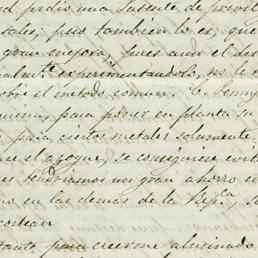 perdió una patente de privile
tales; pero tambien lo es, que
gran mejora, pues aun el des
experimentandolo, no le
sobre el metodo comun. C. Penny
quena, para poner en planta su
para ciertos metales solamente.
el azogue, se consiguiera evit
tendriamos un gran ahorro en
no en las demas de la Repca, se
costean
tante para creerme alucinado